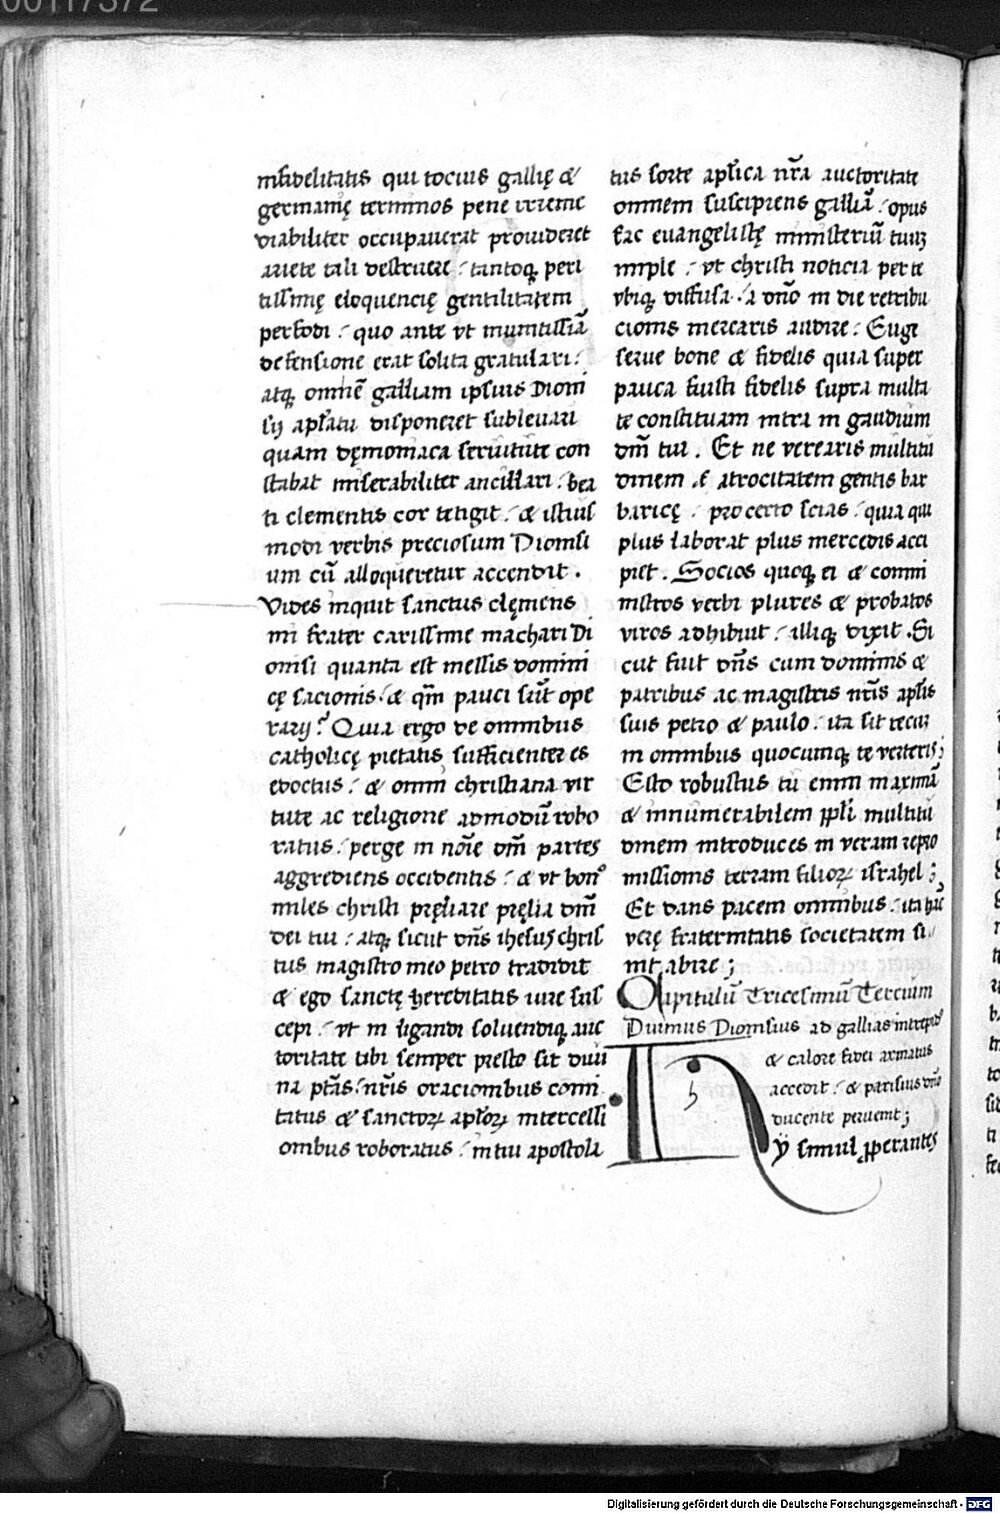 infidelitatis qui tocius gallię &
germanię terminos pene irreme
diabiliter occupauerat prouideret
ariete tali destruere : tantoq peri
tissimę eloquencię gentilitatem
perfodi : quo ante vt munitissiā
defensione erat solita gratulari :
atq omnē galliam ipsius Dioni
sij aplatu disponeret subleuari
quam dęmoniaca seruitute con
stabat miserabiliter ancillari : bea
ti clementis cor tetigit : & istius
modi verbis preciosum Dionisi
um cū alloqueretur accendit .
Vides inquit sanctus clęmens
mi frater carissime machari Di
onisi quanta est messis domini
cę sacionis : & qm̄ pauci sūt ope
rarij ? Quia ergo de omnibus
catholicę pietatis sufficienter es
edoctus : & omni christiana vir
tute ac religione admodū robo
ratus : perge in noīe dnī partes
aggrediens occidentis : & vt bon9
miles christi pręliare pręlia dnī
dei tui : atq sicut dn̄s ihesus chris
tus magistro meo petro tradidit
& ego sanctę hereditatis iure sus
cepi : vt in ligandi soluendiq auc
toritate tibi semper presto sit diui
na ptās : nr̄is oracionibus comi
tatus & sanctoꝝ aploꝝ intercessi
onibus roboratus : in tui apostola
tus sorte aplica nr̄a auctoritate
omnem suscipiens galliā : opus
fac euangelistę ministeriū tuuꝫ
imple : vt christi noticia per te
vbiq diffusa : a dn̄o in die retribu
cionis mercaris audire : Euge
serue bone & fidelis quia super
pauca fuisti fidelis supra multa
te constituam intra in gaudium
dnī tui . Et ne verearis multitu
dinem & atrocitatem gentis bar
baricę : pro certo scias : quia qui
plus laborat plus mercedis acci
piet . Socios quoq ei & commi
nistros verbi plures & probatos
viros adhibuit : illiq dixit . Si
cut fuit dn̄s cum dominis &
patribus ac magistris nr̄is aplis
suis petro & paulo : ita sit tecuꝫ
in omnibus quocumq te verteris ;
Esto robustus tu enim maximā
& innumerabilem ppli multitu
dinem introduces in veram repro
missionis terram filioꝝ israhel ;
Et dans pacem omnibus : ita hāc
verę fraternitatis societatem si
nit abire ;
Capitulū Tricesimū Tercium
Diuinus Dionisius ad gallias intrepid9
& calore fidei armatus
accedit : & parisius dn̄o
ducente peruenit ;
Hij simul pperantes